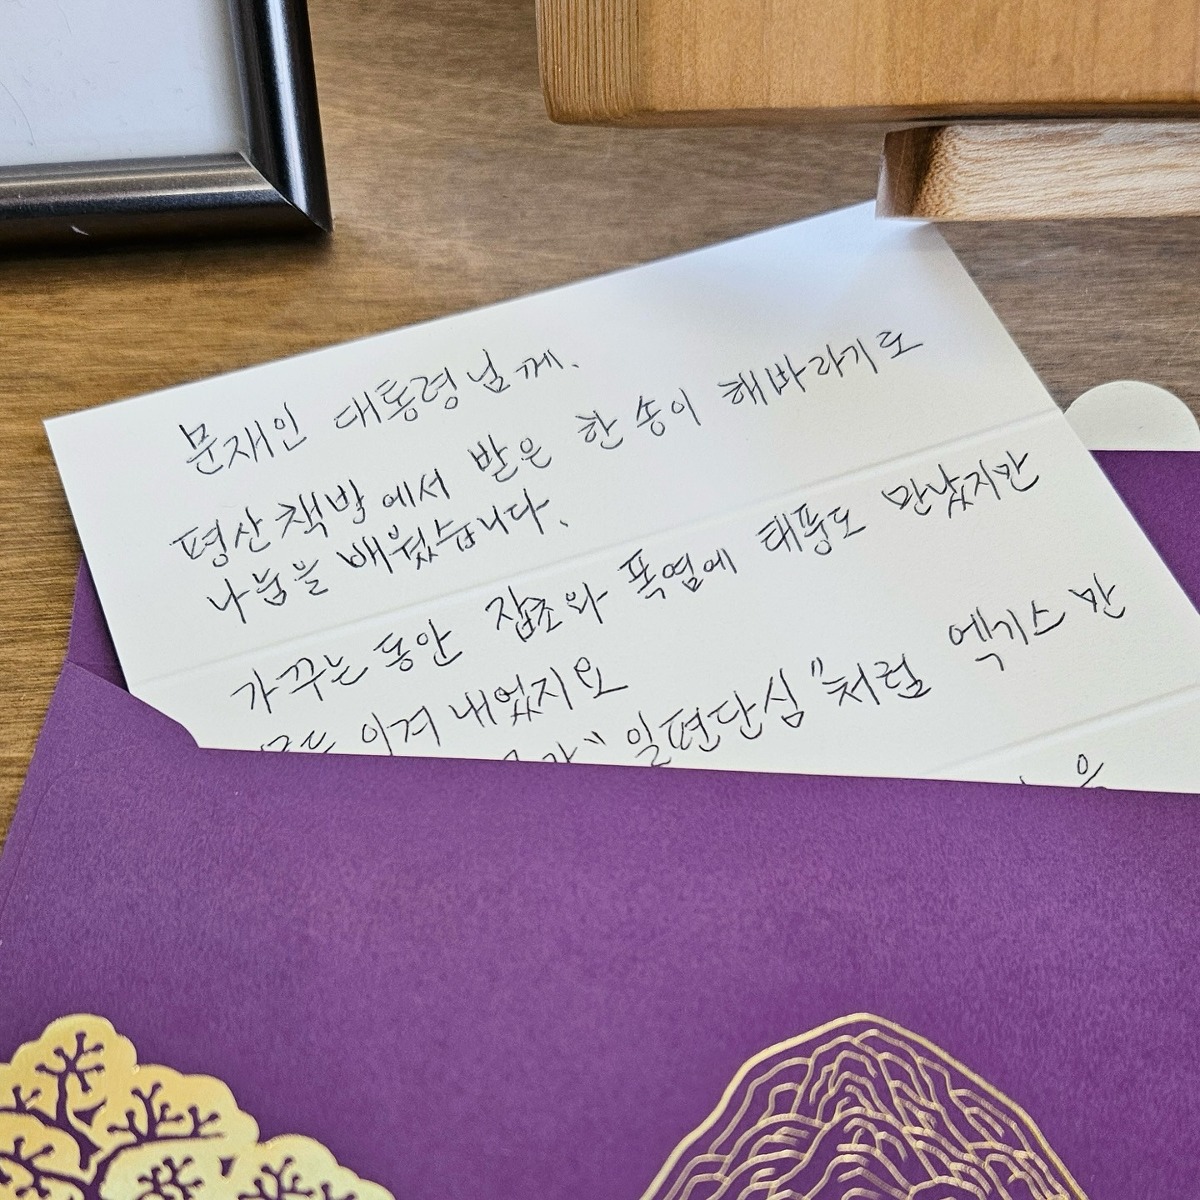 문재인 대통령님께.
평산책방에서 받은 한 송이 해바라기로
나눔을 배웠습니다.
가꾸는 동안 잡초와 폭염에 태풍도 만났지만
모두 이겨 내었지요
"일편단심"처럼 엑기스만